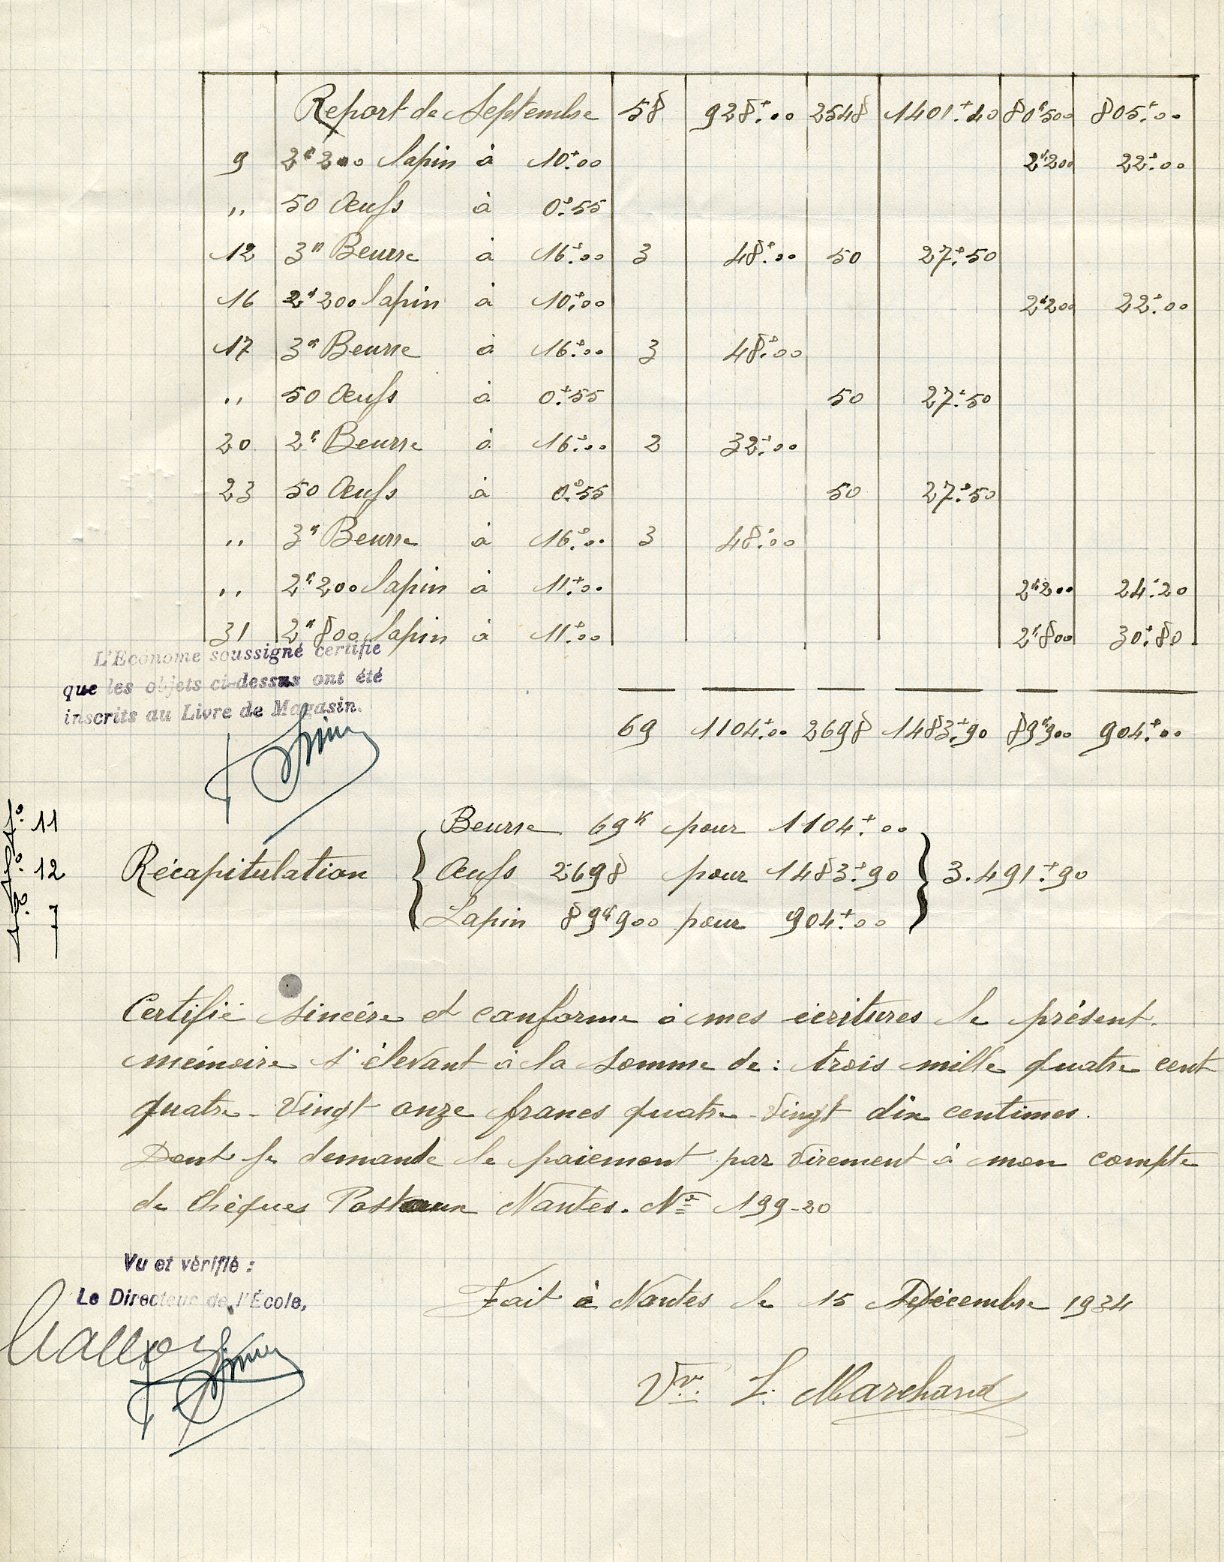 Report de Septembre 58 928f.00 2548 1401f.40 80k500 805f.00
9 2k200 lapin à 10f.00 2k200 22f.00
,, 50 Œufs à 0f.55
12 3k Beurre à 16f.00 3 48f.00 50 27f.50
16 2k200 lapin à 10f.00 2k200 22f.00
17 3k Beurre à 16f.00 3 48f.00
,, 50 Œufs à 0f.55 50 27f.50
20 2k Beurre à 16f.00 2 32f.00
23 50 Œufs à 0f.55 50 27f.50
,, 3k Beurre à 16f.00 3 48f.00
,, 2k200 lapin à 11f.00 2k200 24f.20
31 2k800 lapin à 11f.00 2k800 30f.80
L'Econome soussigné certifie
que les objets ci-dessus ont été
inscrits au Livre de Magasin.
69 1104f.00 2698 1483f.90 89k900 904f.00
No. 11
No. 12
No. 7
Beurre 69k pour 1104f.00
Récapitulation Œufs 2698 pour 1483f.90 3.491f.90
Lapin 89k900 pour 904f.00
Certifié sincère et conforme à mes écritures le présent
mémoire s'élevant à la somme de : trois mille quatre cent
quatre-vingt onze francs quatre-vingt dix centimes.
Dont je demande le paiement par virement à mon compte
de Chèques Postaux Nantes. No 199-20
Vu et vérifié :
Le Directeur de l'École,
Fait à Nantes le 15 Décembre 1934
Vve L. Marchand